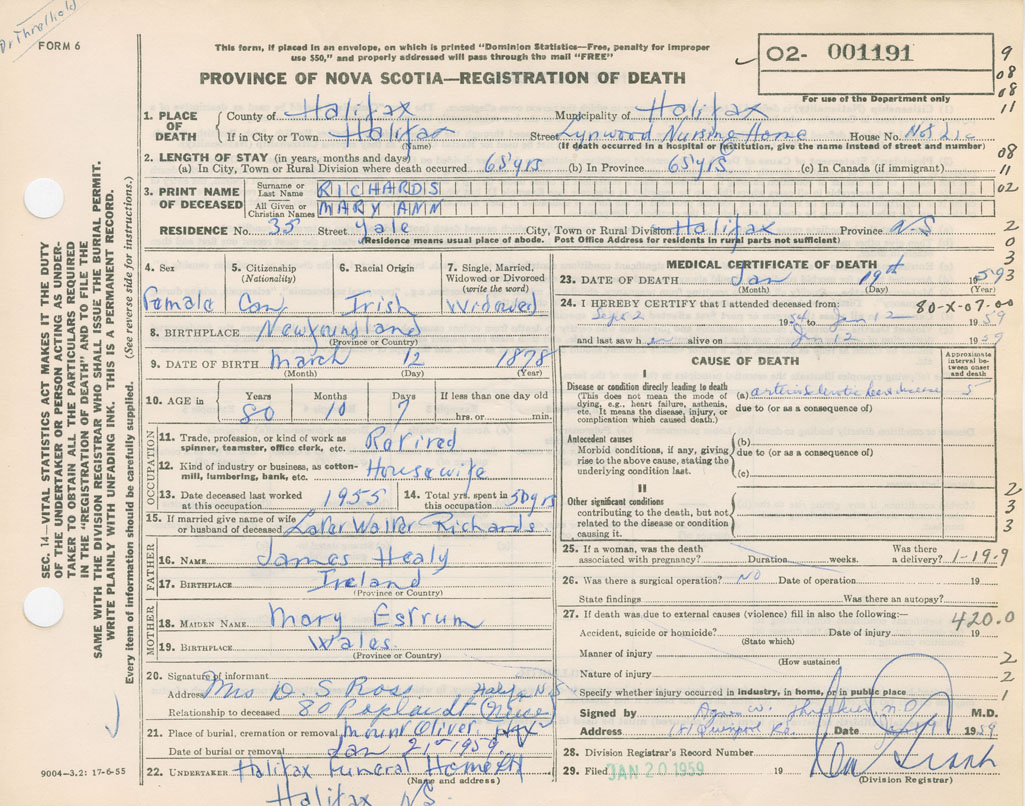 Dr Threlkeld
FORM 6
This form, if placed in an envelope, on which is printed "Dominion Statistics—Free, penalty for improper
use $50," and properly addressed will pass through the mail "FREE"
PROVINCE OF NOVA SCOTIA—REGISTRATION OF DEATH
02- 001191
For use of the Department only
9
08
08
11
08
11
02
2
0
3
3
1. PLACE OF DEATH
County of Halifax Municipality of Halifax
If in City or Town Halifax (Name) Street Lynwood Nursing Home House No. Not Lic
(If death occurred in a hospital or institution, give the name instead of street and number)
2. LENGTH OF STAY (in years, months and days)
(a) In City, Town or Rural Division where death occurred 65 yrs (b) In Province 65 yrs. (c) In Canada (if immigrant)
3. PRINT NAME OF DECEASED
Surname or Last Name RICHARDS
All Given or Christian Names MARY ANN
RESIDENCE No. 35 Street Yale City, Town or Rural Division Halifax Province N-S
(Residence means usual place of abode. Post Office Address for residents in rural parts not sufficient)
4. Sex 5. Citizenship (Nationality) 6. Racial Origin 7. Single, Married, Widowed or Divorced (write the word)
Female Can Irish Widowed
8. BIRTHPLACE Newfoundland
(Province or Country)
9. DATE OF BIRTH March 12 1878
(Month) (Day) (Year)
10. AGE in Years Months Days If less than one day old
80 10 7 hrs. or min.
OCCUPATION
11. Trade, profession, or kind of work as spinner, teamster, office clerk, etc. Retired
12. Kind of industry or business, as cotton-mill, lumbering, bank, etc. Housewife
13. Date deceased last worked at this occupation 1955 14. Total yrs. spent in this occupation 50 yrs
15. If married give name of wife or husband of deceased Later Walter Richards.
FATHER
16. NAME James Healy
17. BIRTHPLACE Ireland
(Province or Country)
MOTHER
18. MAIDEN NAME Mary Estrum
19. BIRTHPLACE Wales
(Province or Country)
20. Signature of informant
Address Mrs D. S Ross Halifax N.S
Relationship to deceased 80 (Niece)
21. Place of burial, cremation or removal Mount Olivet
Date of burial or removal Jan 21st 1959.
22. UNDERTAKER Halifax Funeral Home
(Name and address)
Halifax N.S.
9004—3.2: 17-6-55
MEDICAL CERTIFICATE OF DEATH
23. DATE OF DEATH Jan 19th 1959
(Month) (Day) (Year)
24. I HEREBY CERTIFY that I attended deceased from: 80-X-07-00
Sept 2 1954 to Jan 12 1959
and last saw her alive on Jan 12 1959
CAUSE OF DEATH
Approximate interval between onset and death
I
Disease or condition directly leading to death
(This does not mean the mode of dying, e.g., heart failure, asthenia, etc. It means the disease, injury, or complication which caused death.)
(a) arteriosclerotic heart disease 5
due to (or as a consequence of)
Antecedent causes
Morbid conditions, if any, giving rise to the above cause, stating the underlying condition last.
(b)
due to (or as a consequence of)
(c)
II
Other significant conditions contributing to the death, but not related to the disease or condition causing it.
2
3
3
25. If a woman, was the death associated with pregnancy? Duration weeks. Was there a delivery? 1-19-9
26. Was there a surgical operation? NO Date of operation 19
State findings Was there an autopsy?
27. If death was due to external causes (violence) fill in also the following:— 420.0
Accident, suicide or homicide? (State which) Date of injury 19
Manner of injury (How sustained) 2
Nature of injury 2
Specify whether injury occurred in industry, in home, or in public place 1
Signed by M.D.
Address Date 1959
28. Division Registrar's Record Number
29. Filed JAN 20 1959 19
(Division Registrar)
SEC. 14—VITAL STATISTICS ACT MAKES IT THE DUTY
OF THE UNDERTAKER OR PERSON ACTING AS UNDER-
TAKER TO OBTAIN ALL THE PARTICULARS REQUIRED
IN THE "REGISTRATION OF DEATH" AND TO FILE THE
SAME WITH THE DIVISION REGISTRAR WHO SHALL ISSUE THE BURIAL PERMIT.
WRITE PLAINLY WITH UNFADING INK. THIS IS A PERMANENT RECORD.
Every item of information should be carefully supplied. (See reverse side for instructions.)